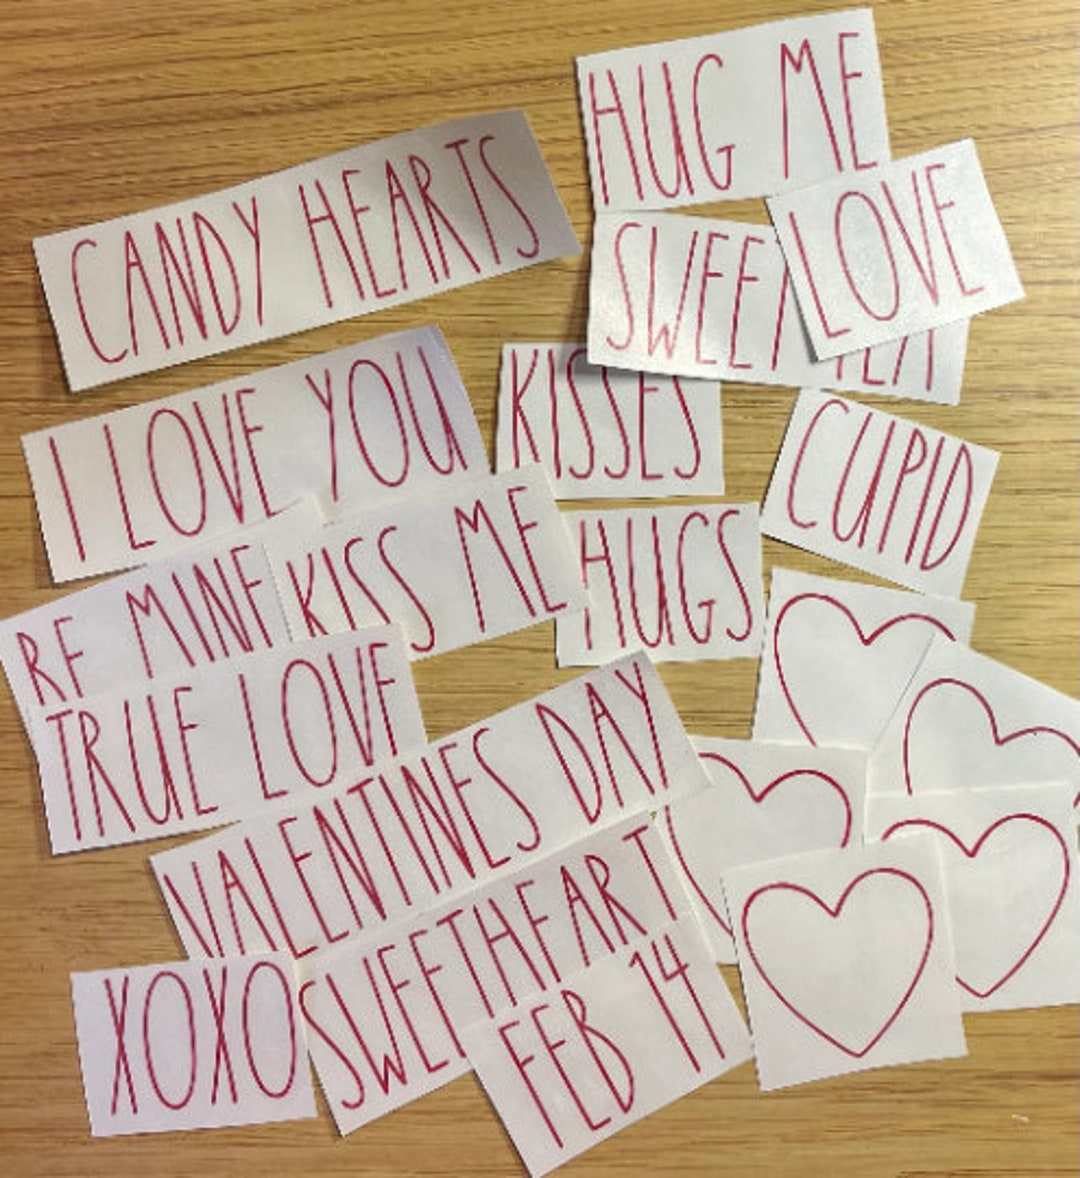 HUG ME
CANDY HEARTS
LOVE
SWEET
I LOVE YOU
KISSES
CUPID
KISS ME
HUGS
BE MINE
TRUE LOVE
VALENTINES DAY
SWEETHEART
XOXO
FEB 14